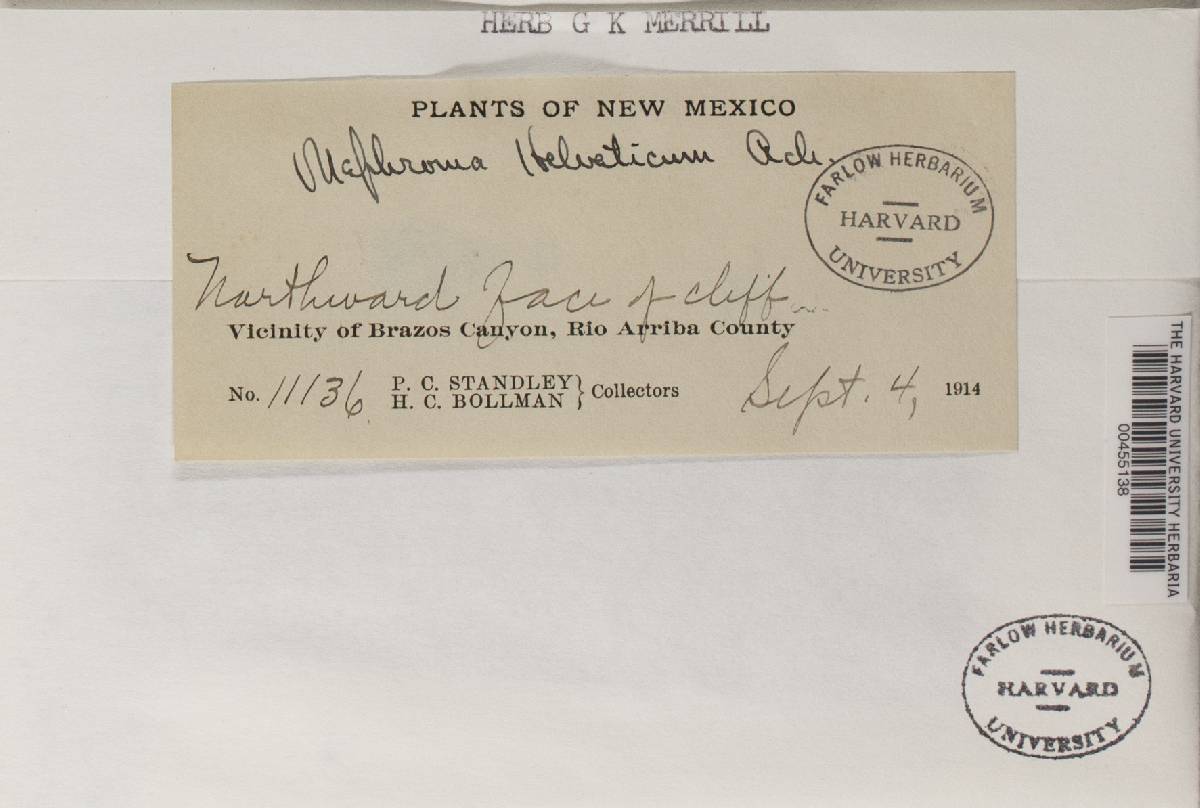 HERB G K MERRILL
PLANTS OF NEW MEXICO
Nephroma Helveticum Ach.
FARLOW HERBARIUM
HARVARD
UNIVERSITY
Northward face of cliff
Vicinity of Brazos Canyon, Rio Arriba County
No. 11136 P. C. STANDLEY
H. C. BOLLMAN } Collectors Sept. 4, 1914
THE HARVARD UNIVERSITY HERBARIA
00455138
FARLOW HERBARIUM
HARVARD
UNIVERSITY